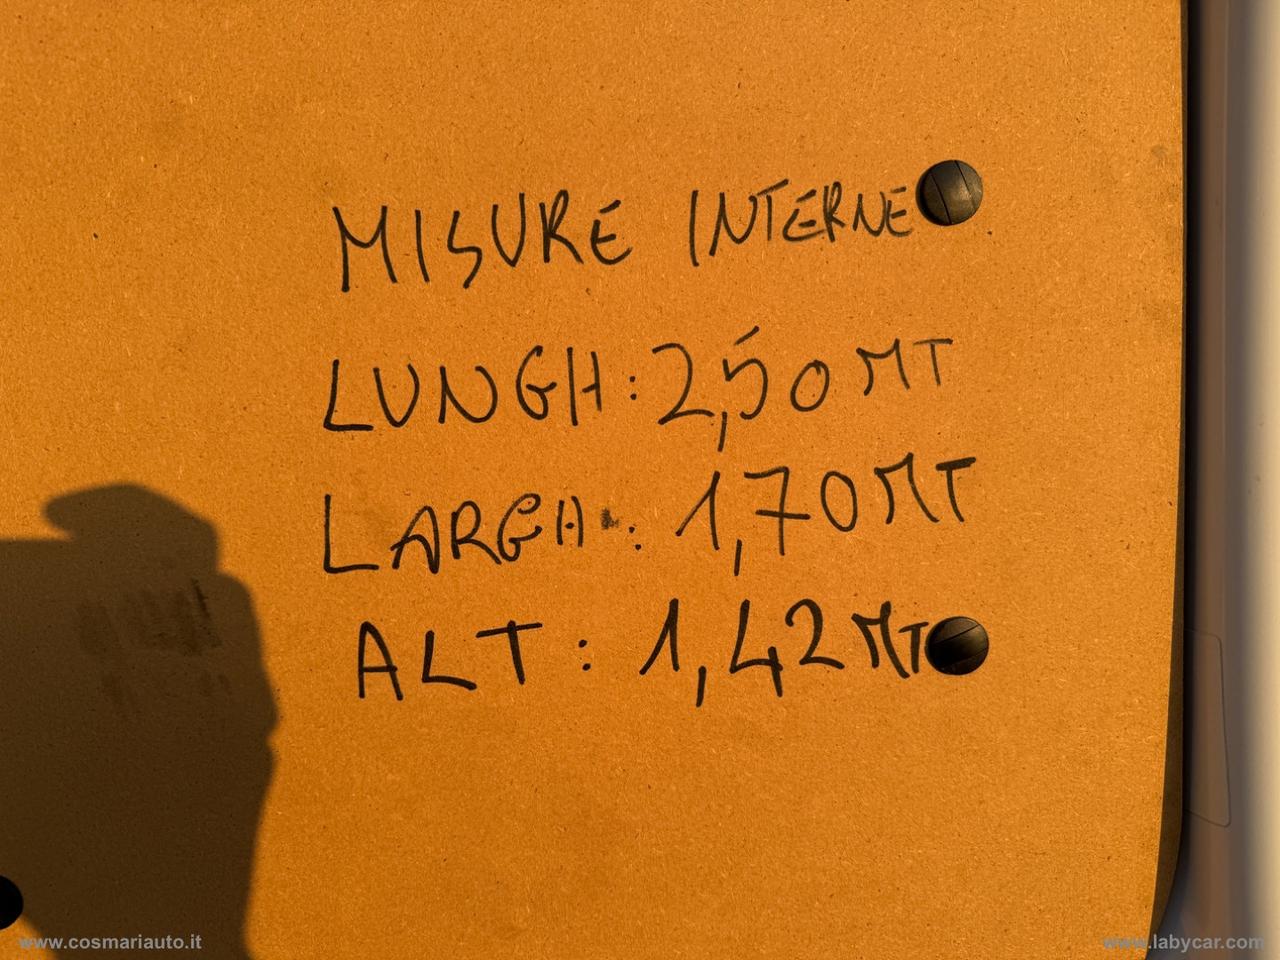 MISURE INTERNE
LUNGH: 2,50 MT
LARGH: 1,70 MT
ALT: 1,42 MT
www.cosmariauto.it
www.labycar.com